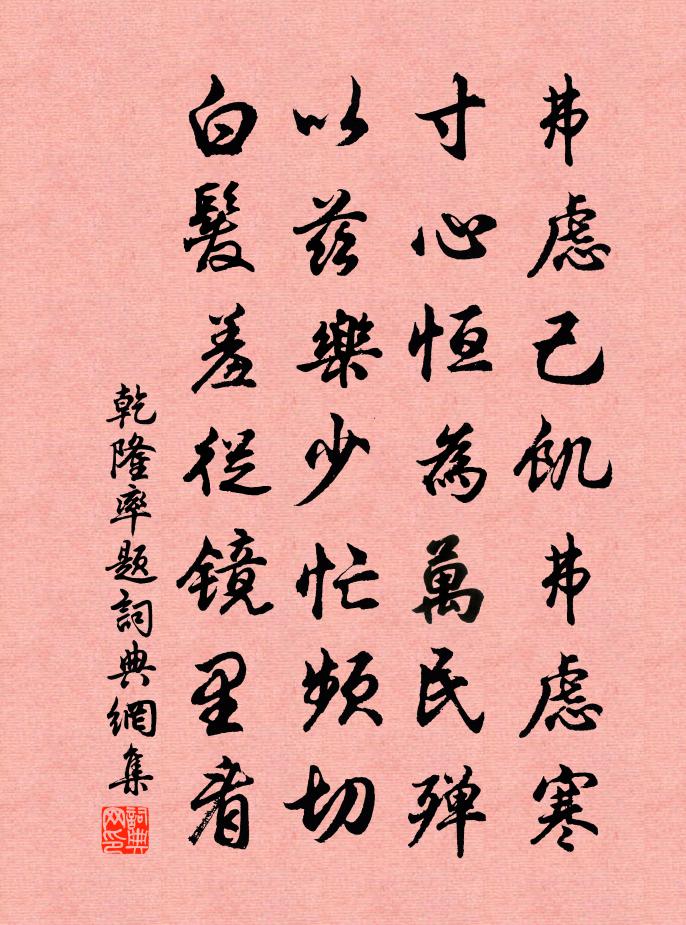 弗慮己飢弗慮寒
寸心恒為萬民殫
以茲樂少忙頻切
白髮羞從镜里看
乾隆率題詞典網集
詞典网印